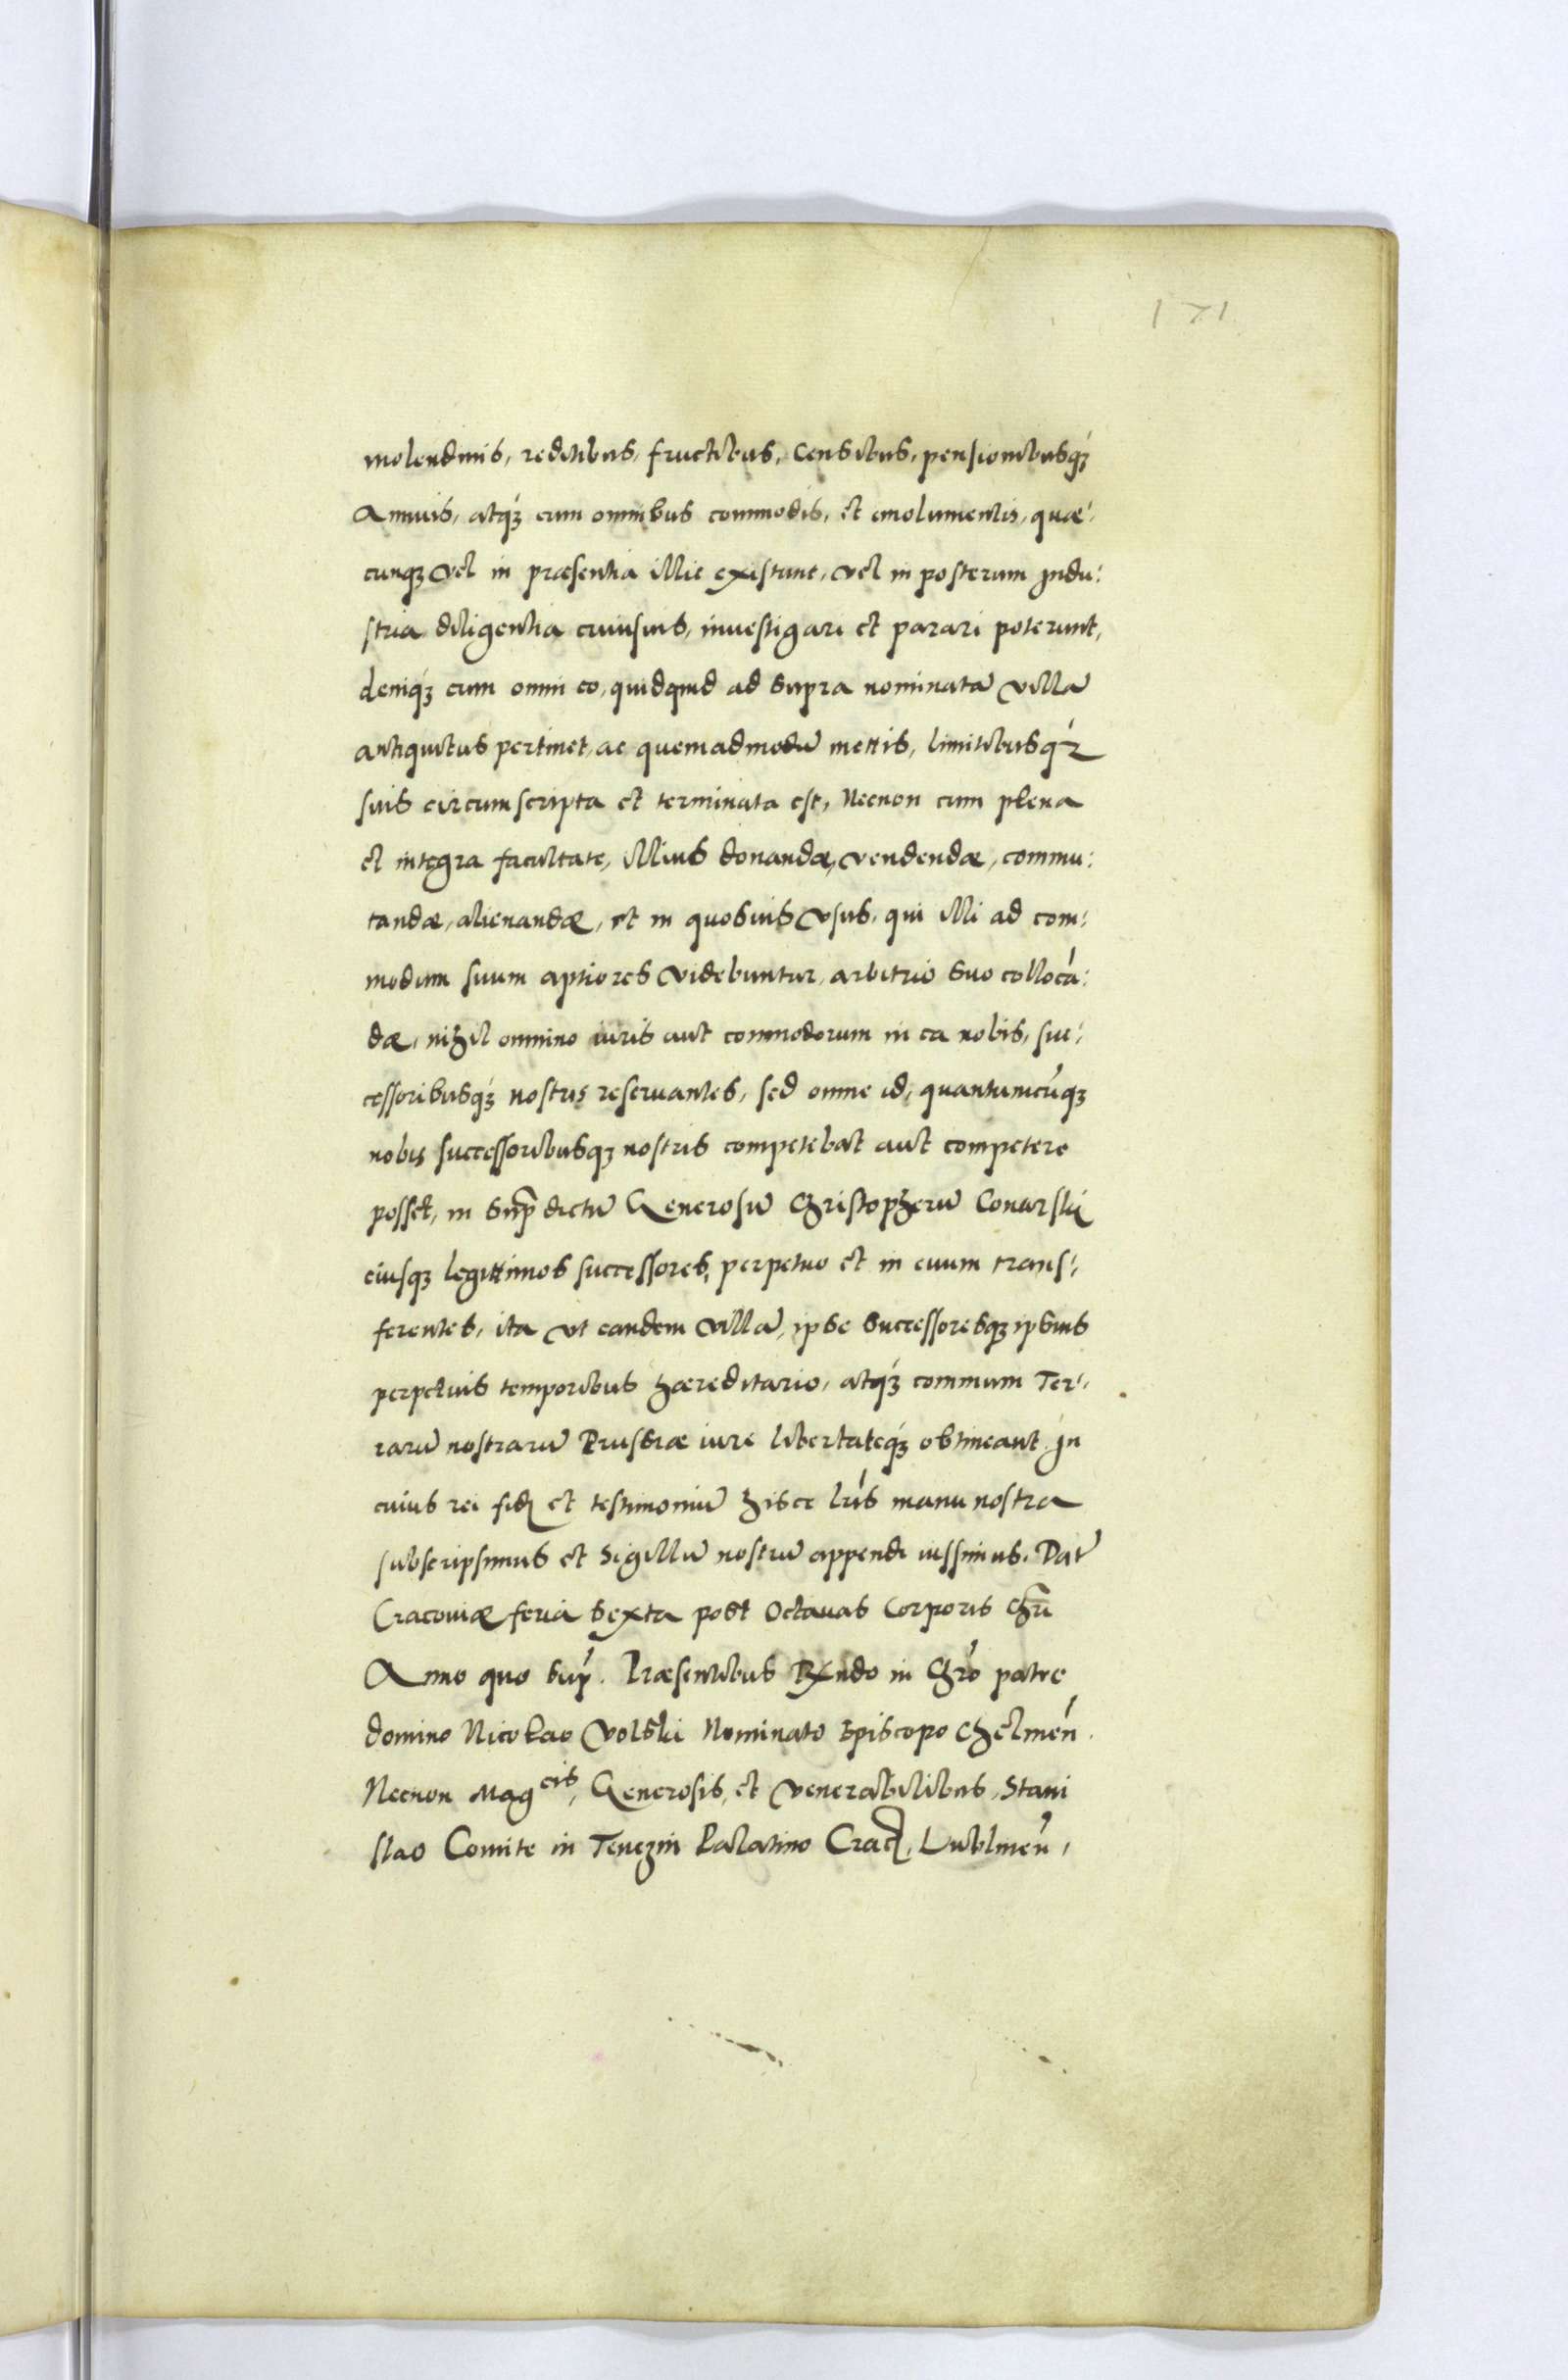 171
molendinis, reditibus, fructibus, Censibus, pensionibusq́ꝫ
Annuis, atq́ꝫ cum omnibus commodis, et emolumentis, quæ:
cunqꝫ vel in præsentia illic existunt, vel in posterum indu:
stria diligentia cuiusuis, inuestigari et parari poterunt,
deniq́ꝫ cum omni eo, quidquid ad supra nominatā villā
antiquitus pertinet, ac quemadmodū mettis, limitibusq́ꝫ
suis circumscripta et terminata est, Necnon cum plena
et integra facultate, illius donandæ, vendendæ, commu:
tandæ, alienandæ, et in quosuis vsus, qui illi ad com:
modum suum aptiores videbuntur, arbitrio suo collocā:
dæ, nihil omnino iuris aut commodorum in ea nobis, suc:
cessoribusq́ꝫ nostris reseruantes, sed omne id, quantumcūqꝫ
nobis successoribusqꝫ nostris competebat aut competere
posset, in sup̄dictū Generosū Christopherū Conarski
eiusqꝫ legittimos successores, perpetuo et in euum trans:
ferentes, ita vt eandem villā, ipse successoresqꝫ ipsius
perpetuis temporibus hæreditario, atq́ꝫ communi Ter:
rarū nostrarū Prussiæ iure libertateq́ꝫ obtineant. In
cuius rei fidē et testimoniū hisce lr̄is manu nostra
subscripsimus et Sigillū nostrū appendi iussimus. Dat̄
Cracouiæ feria sexta post Octauas Corporis Chr̄i
Anno quo sup̄. Præsentibus Rx̄ndo in Chr̄o patre
domino Nicolao Volski Nominato Episcopo Chelmeń.
Necnon Magcis, Generosis, et Venerabilibus, Stani
slao Comite in Tenczin Palatino Crac̄, Lublineń,